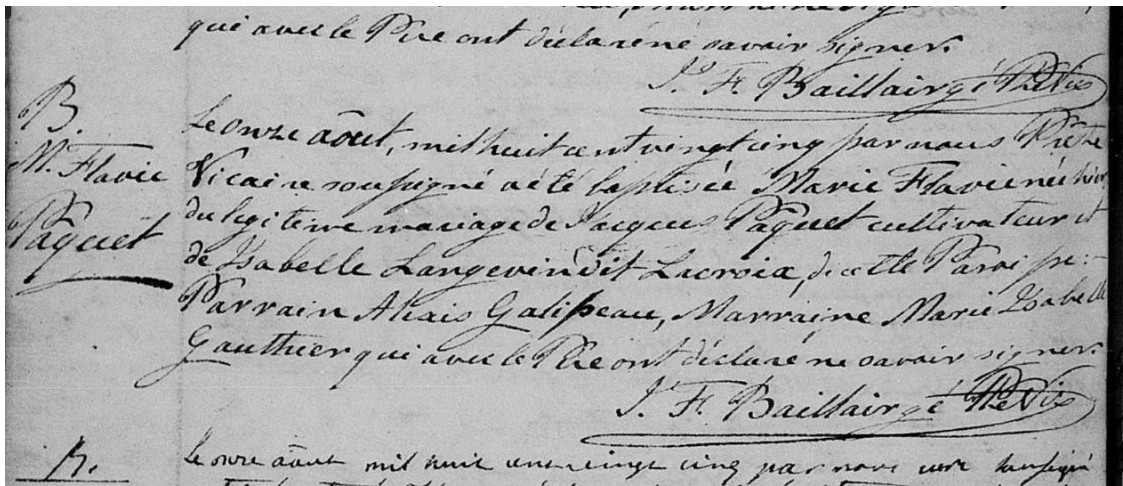 qui avec le Père ont déclaré ne savoir signer.
J. F. Baillairgé Ptre Vic
B.
M. Flavie
Paquet
Le onze août, mil huit cent vingt cinq par nous Prêtre
Vicaire soussigné a été baptisée Marie Flavie née hier
du légitime mariage de Jacques Paquet cultivateur et
de Isabelle Langevin dit Lacroix, de cette Paroisse.
Parrain Alexis Galipeau, Marraine Marie Isabelle
Gauthier qui avec le Père ont déclaré ne savoir signer.
J. F. Baillairgé Ptre Vic
B.
Le onze août mil huit cent vingt cinq par nous curé soussigné